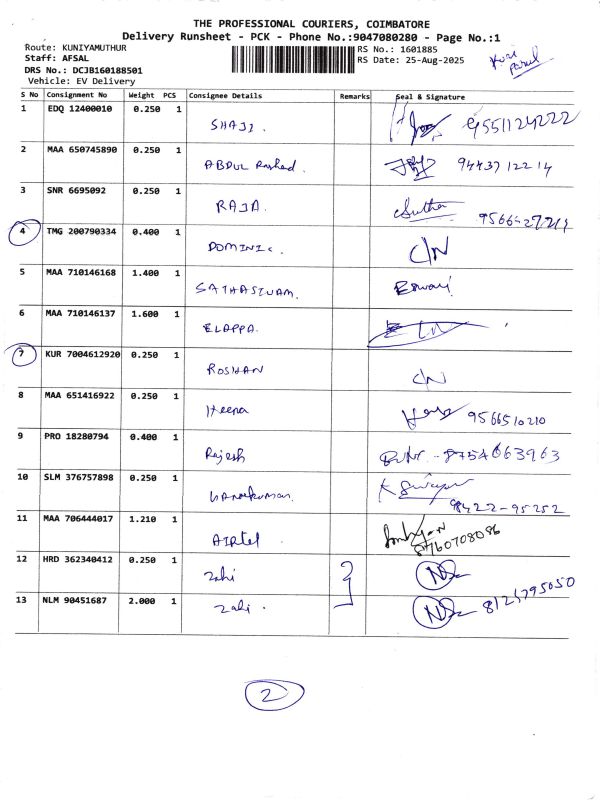 THE PROFESSIONAL COURIERS, COIMBATORE
Delivery Runsheet - PCK - Phone No.:9047080280 - Page No.:1
Route: KUNIYAMUTHUR RS No.: 1601885
Staff: AFSAL RS Date: 25-Aug-2025
DRS No.: DCJB160188501
Vehicle: EV Delivery
S No Consignment No Weight PCS Consignee Details Remarks Seal & Signature
1 EDQ 12400010 0.250 1 SHAJI. 9551124222
2 MAA 650745890 0.250 1 ABDUL Rashed. 9443712214
3 SNR 6695092 0.250 1 RAJA. Sutha
4 TMG 200790334 0.400 1 DOMINIC. C/N
5 MAA 710146168 1.400 1 SATHASIVAM. Eswari
6 MAA 710146137 1.600 1 ELAPPA.
7 KUR 7004612920 0.250 1 ROSHAN C/N
8 MAA 651416922 0.250 1 Heena 9566510210
9 PRO 18280794 0.400 1 Rajesh 8754663963
10 SLM 376757898 0.250 1 98422-95252
11 MAA 706444017 1.210 1 AIRtel 8760708086
12 HRD 362340412 0.250 1 Zahi
13 NLM 90451687 2.000 1 Zahi. 8125795050
2